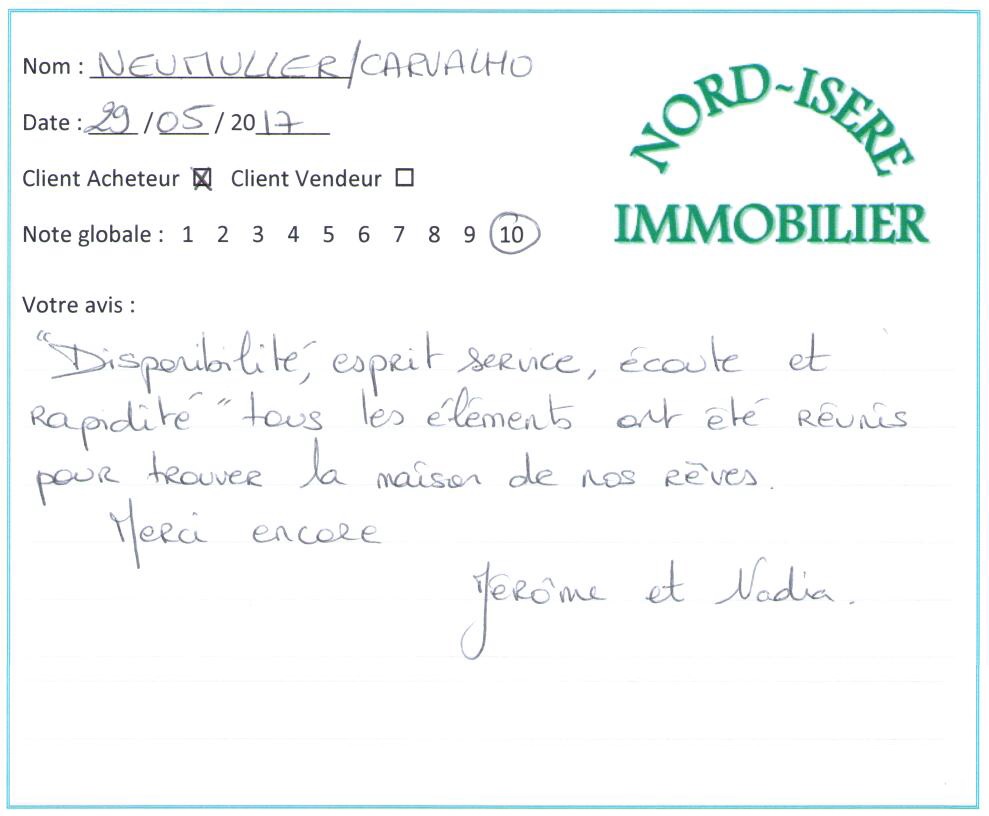 Nom : NEUMULLER/CARVALHO
Date : 29/05/2017
Client Acheteur ☒ Client Vendeur ☐
Note globale : 1 2 3 4 5 6 7 8 9 10
NORD-ISERE
IMMOBILIER
Votre avis :
"Disponibilité, esprit service, écoute et
Rapidité" tous les éléments ont été réunis
pour trouver la maison de nos rêves.
Merci encore
Jérôme et Nadia.